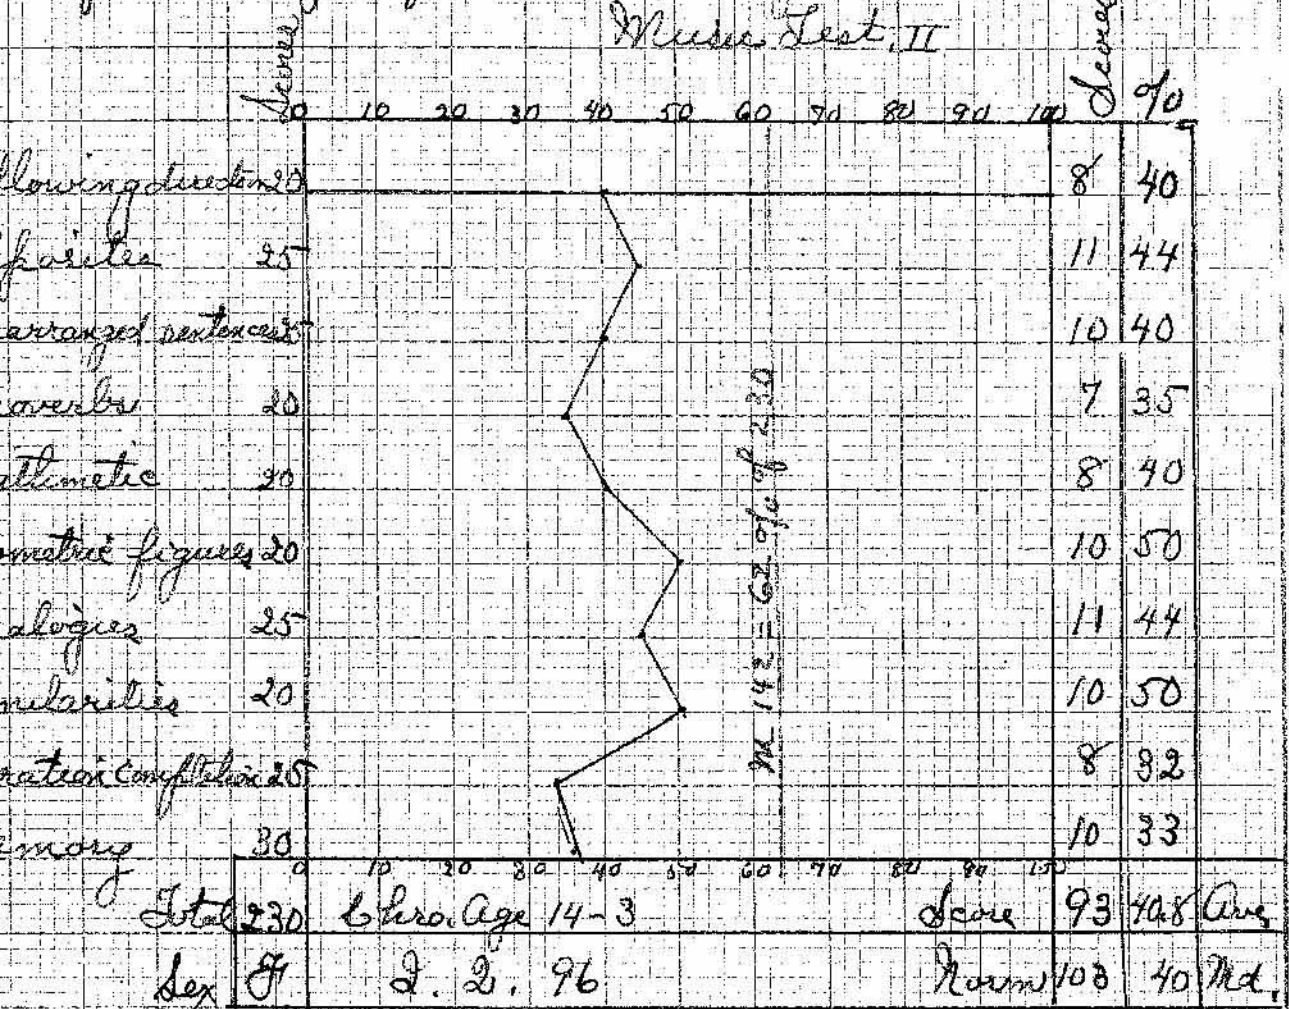 Music Test, II
Scores Scores %
0 10 20 30 40 50 60 70 80 90 100
llowing direction 20 8 40
pposites 25 11 44
arranged sentences 25 10 40
overbs 20 7 35
aithmetic 20 8 40
ometric figures 20 10 50
alogies 25 11 44
milarities 20 10 50
ration completion 25 8 32
emory 30 10 33
M 142 = 62 % of 230
0 10 20 30 40 50 60 70 80 90 100
Total 230 Chro. Age 14-3 Score 93 40.8 Ave,
Sex F I. Q. 96 Norm 103 40 Md.